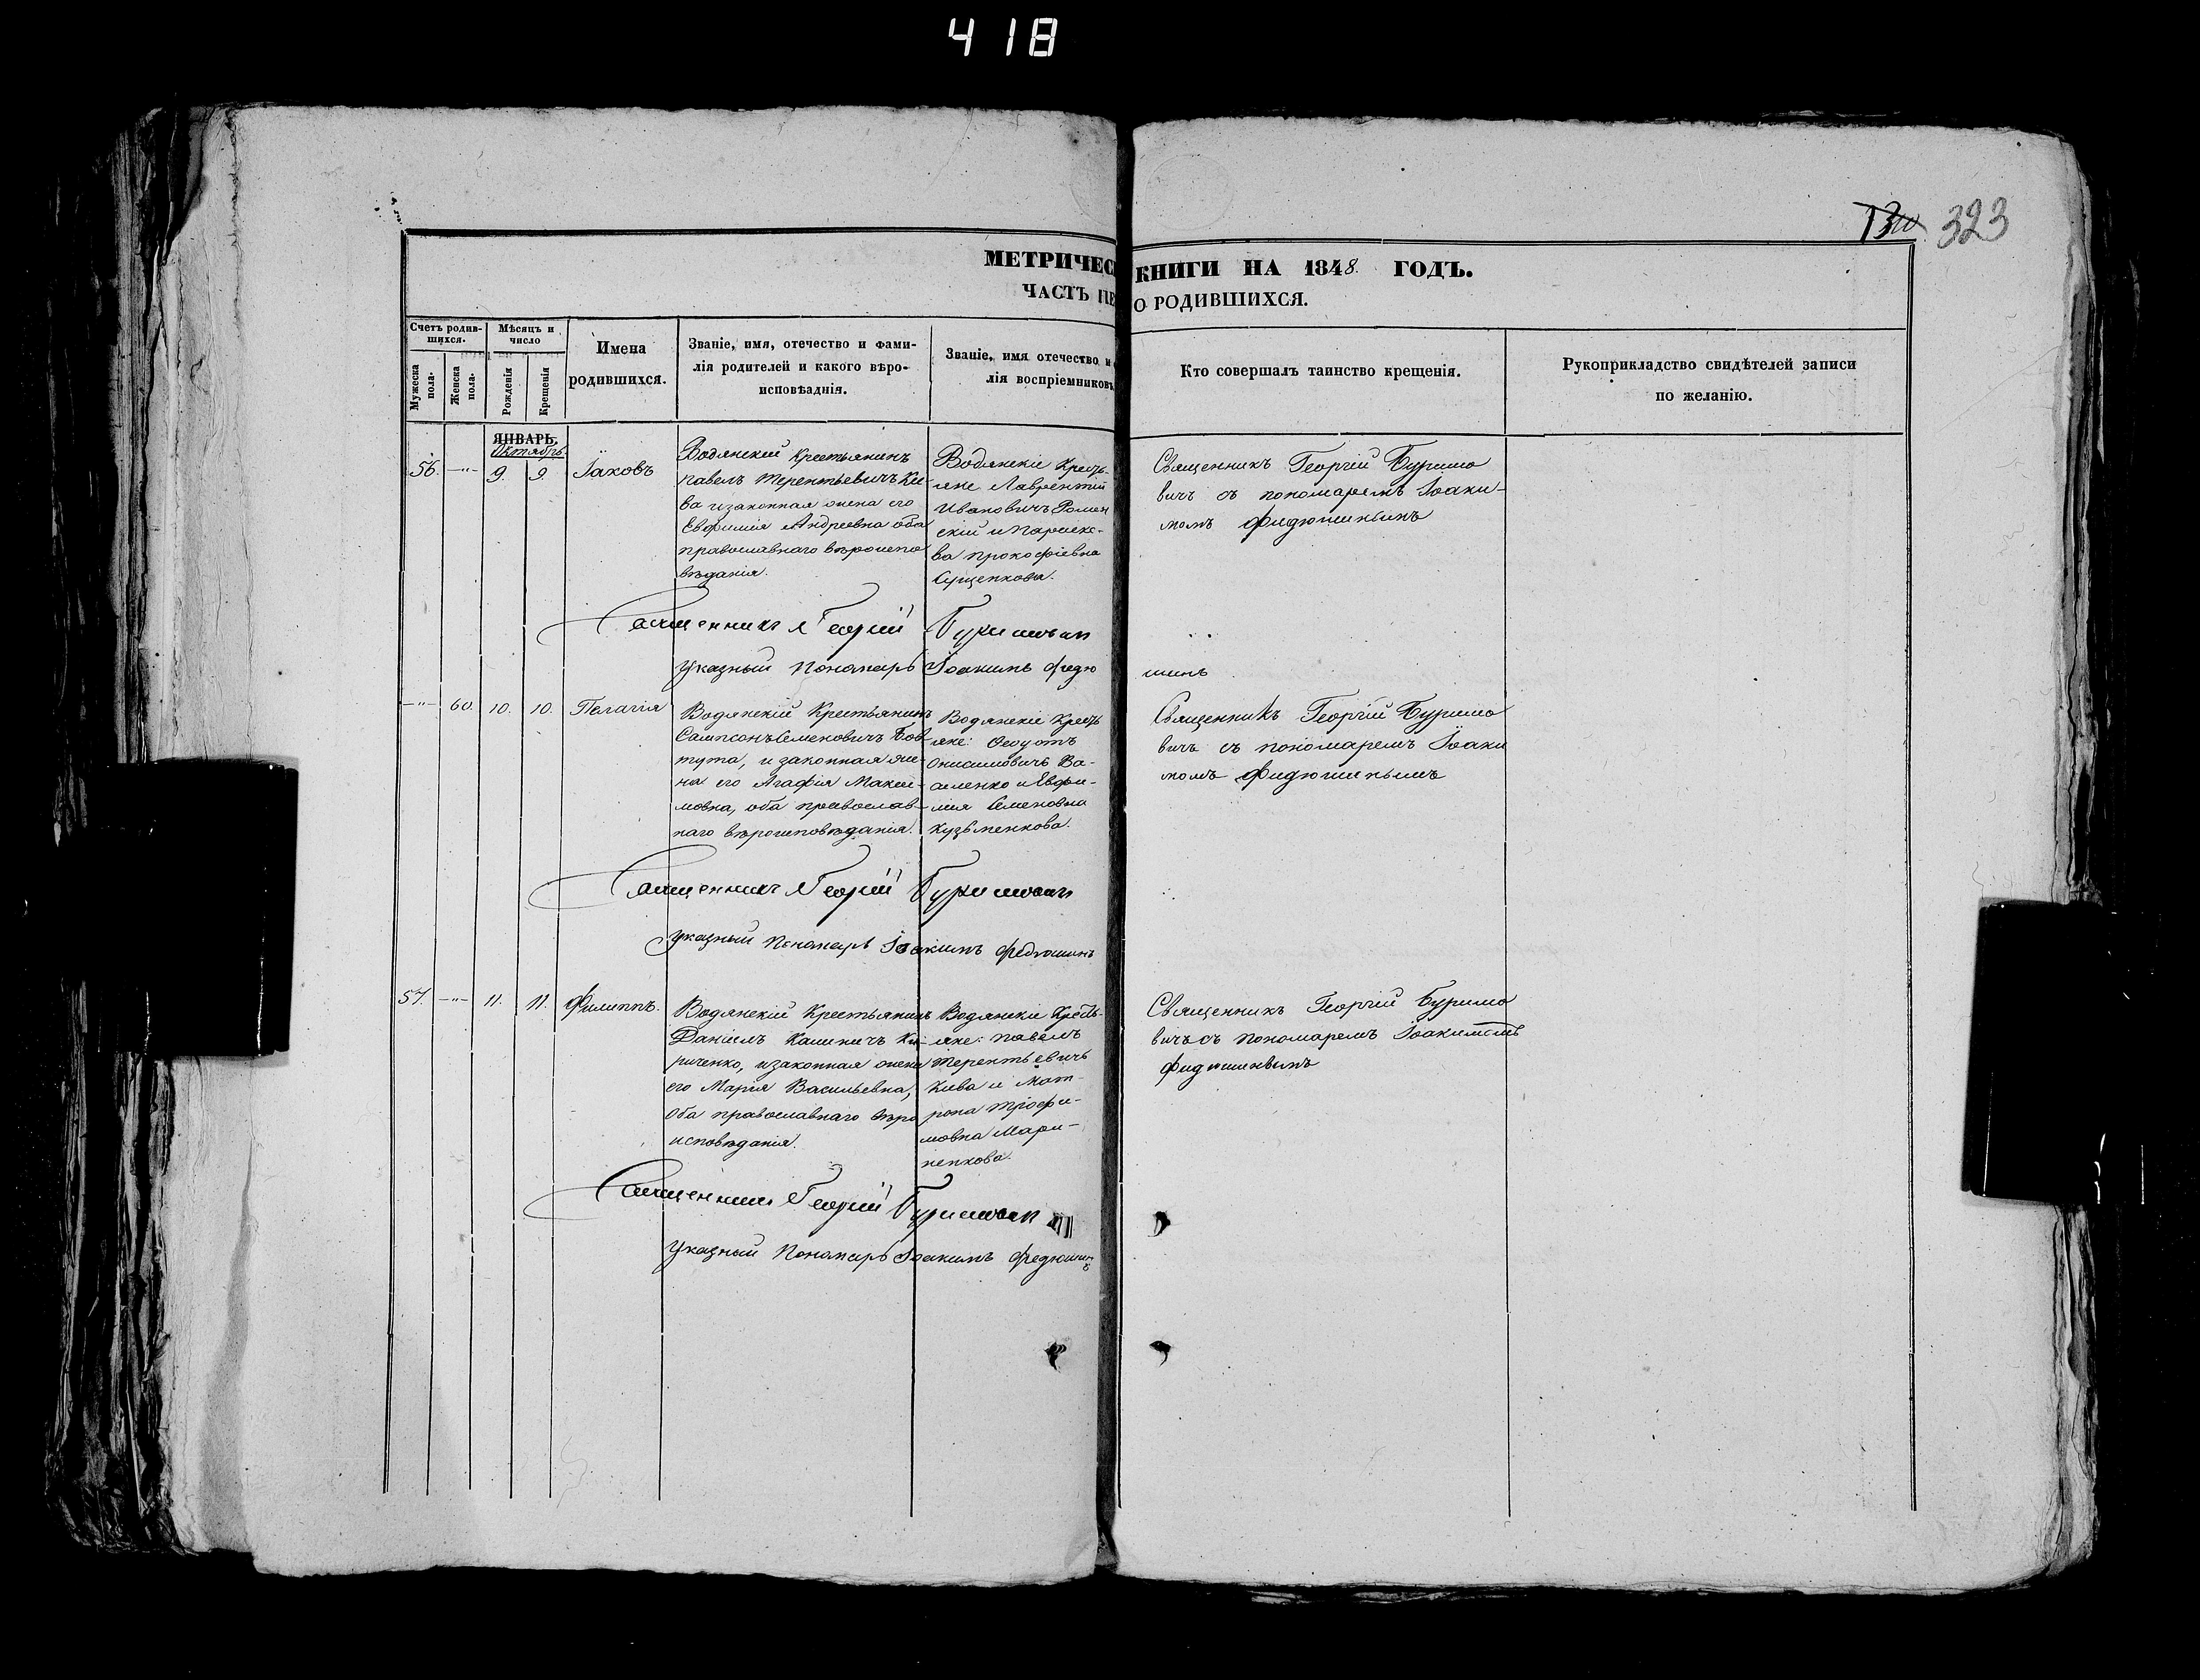 418
323
МЕТРИЧЕС КНИГИ НА 1848. ГОДЪ.
ЧАСТЬ ПЕ О РОДИВШИХСЯ.
Счетъ родив-
шихся.
Мужеска
пола.
Женска
пола.
Мѣсяцъ и
число
Рожденія
Крещенія
Имена
родившихся.
Званіе, имя, отечество и фами-
лія родителей и какого вѣро-
исповѣаднія.
Званіе, имя отечество и
лія воспріемниковъ
Кто совершалъ таинство крещенія.
Рукоприкладство свидѣтелей записи
по желанію.
ЯНВАРЬ.
Октябрь.
56. —"— 9. 9. Іаковъ
Водянскій Крестьянинъ
Павелъ Терентьевичъ Ки-
ва и законная жена его
Евфимія Андреевна оба
православнаго вѣроиспо
вѣданія.
Водянскіе Кресть-
яне Лаврентій
Ивановичъ Ромен
скій и Параске-
ва Прокофіевна
Сущенкова.
Священникъ Георгій Буримо
вичъ съ пономаремъ Іоаки-
момъ Фидюшинымъ
Священникъ Георгій Буримович
Указный Пономарь Іоакимъ Федю
шинъ
—"— 60. 10. 10. Пелагія
Водянскій Крестьянинъ
Сампсонъ Семеновичъ Бов
тута, и законная же-
на его Агафія Макси-
мовна, оба православ-
наго вѣроисповѣданія.
Водянскіе Кресть
яне: Феодотъ
Онисимовичъ Ва-
силенко и Евфи-
мія Семеновна
Кузьменкова.
Священникъ Георгій Буримо
вичъ съ пономаремъ Іоаки
момъ Фидюшинымъ
Священникъ Георгій Буримович
Указный Пономарь Іоакимъ Федюшинъ
57. —"— 11. 11. Филиппъ.
Водянскій Крестьянинъ
Даніилъ Калиничъ Ки-
риченко, и законная жена
его Марія Васильевна,
Оба православнаго вѣро
исповѣданія.
Водянскіе Кресть-
яне: Павелъ
Терентьевичъ
Кива и Мат-
рона Трофи-
мовна Мари-
ненкова.
Священникъ Георгій Буримо
вичъ съ пономаремъ Іоакимомъ
Фидюшинымъ
Священникъ Георгій Буримович
Указный Пономарь Іоакимъ Федюшинъ